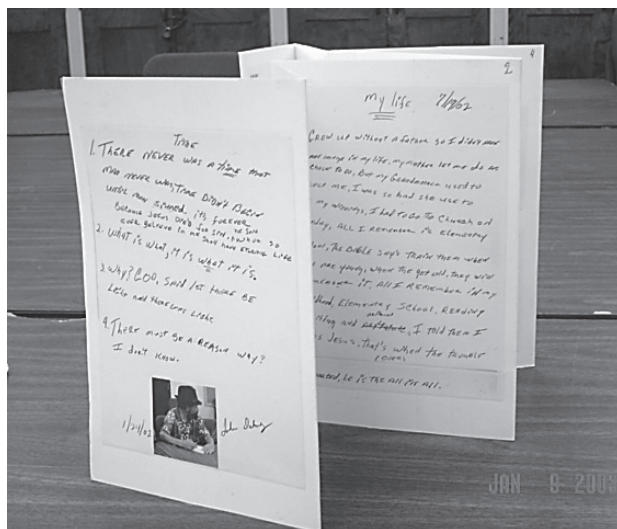 Time
1. THERE NEVER WAS A time that
MAN NEVER WAS, TIME DIDN'T BEGIN
WHEN MAN SINNED, it's FOREVER
BECAUSE JESUS DIED for SIN, + WHO SO
EVER BELIEVE IN HE SHALL HAVE ETERNAL LIFE
2. WHAT is WHAT, it is WHAT it is.
3. WHY? GOD, SAID let there BE
Light AND there was Light.
4. THERE must BE A REASON WHY?
I don't know.
1/21/02 John
2
4
my life 7/19/02
GREW UP without A father so I didn't
in my life, my mother let me do as
to DO, But my Grandmom used to
me, I was so bad she use to
my, I had to GO to CHURCH on
day, All I remember is elementary
THE BIBLE say's train them when
are young, when the get old, they will
it, All I Remember in my
hood, Elementary School, READING
and, I told them I
Jesus, That's when the trouble
, he is the All in All.
JAN 9 2003